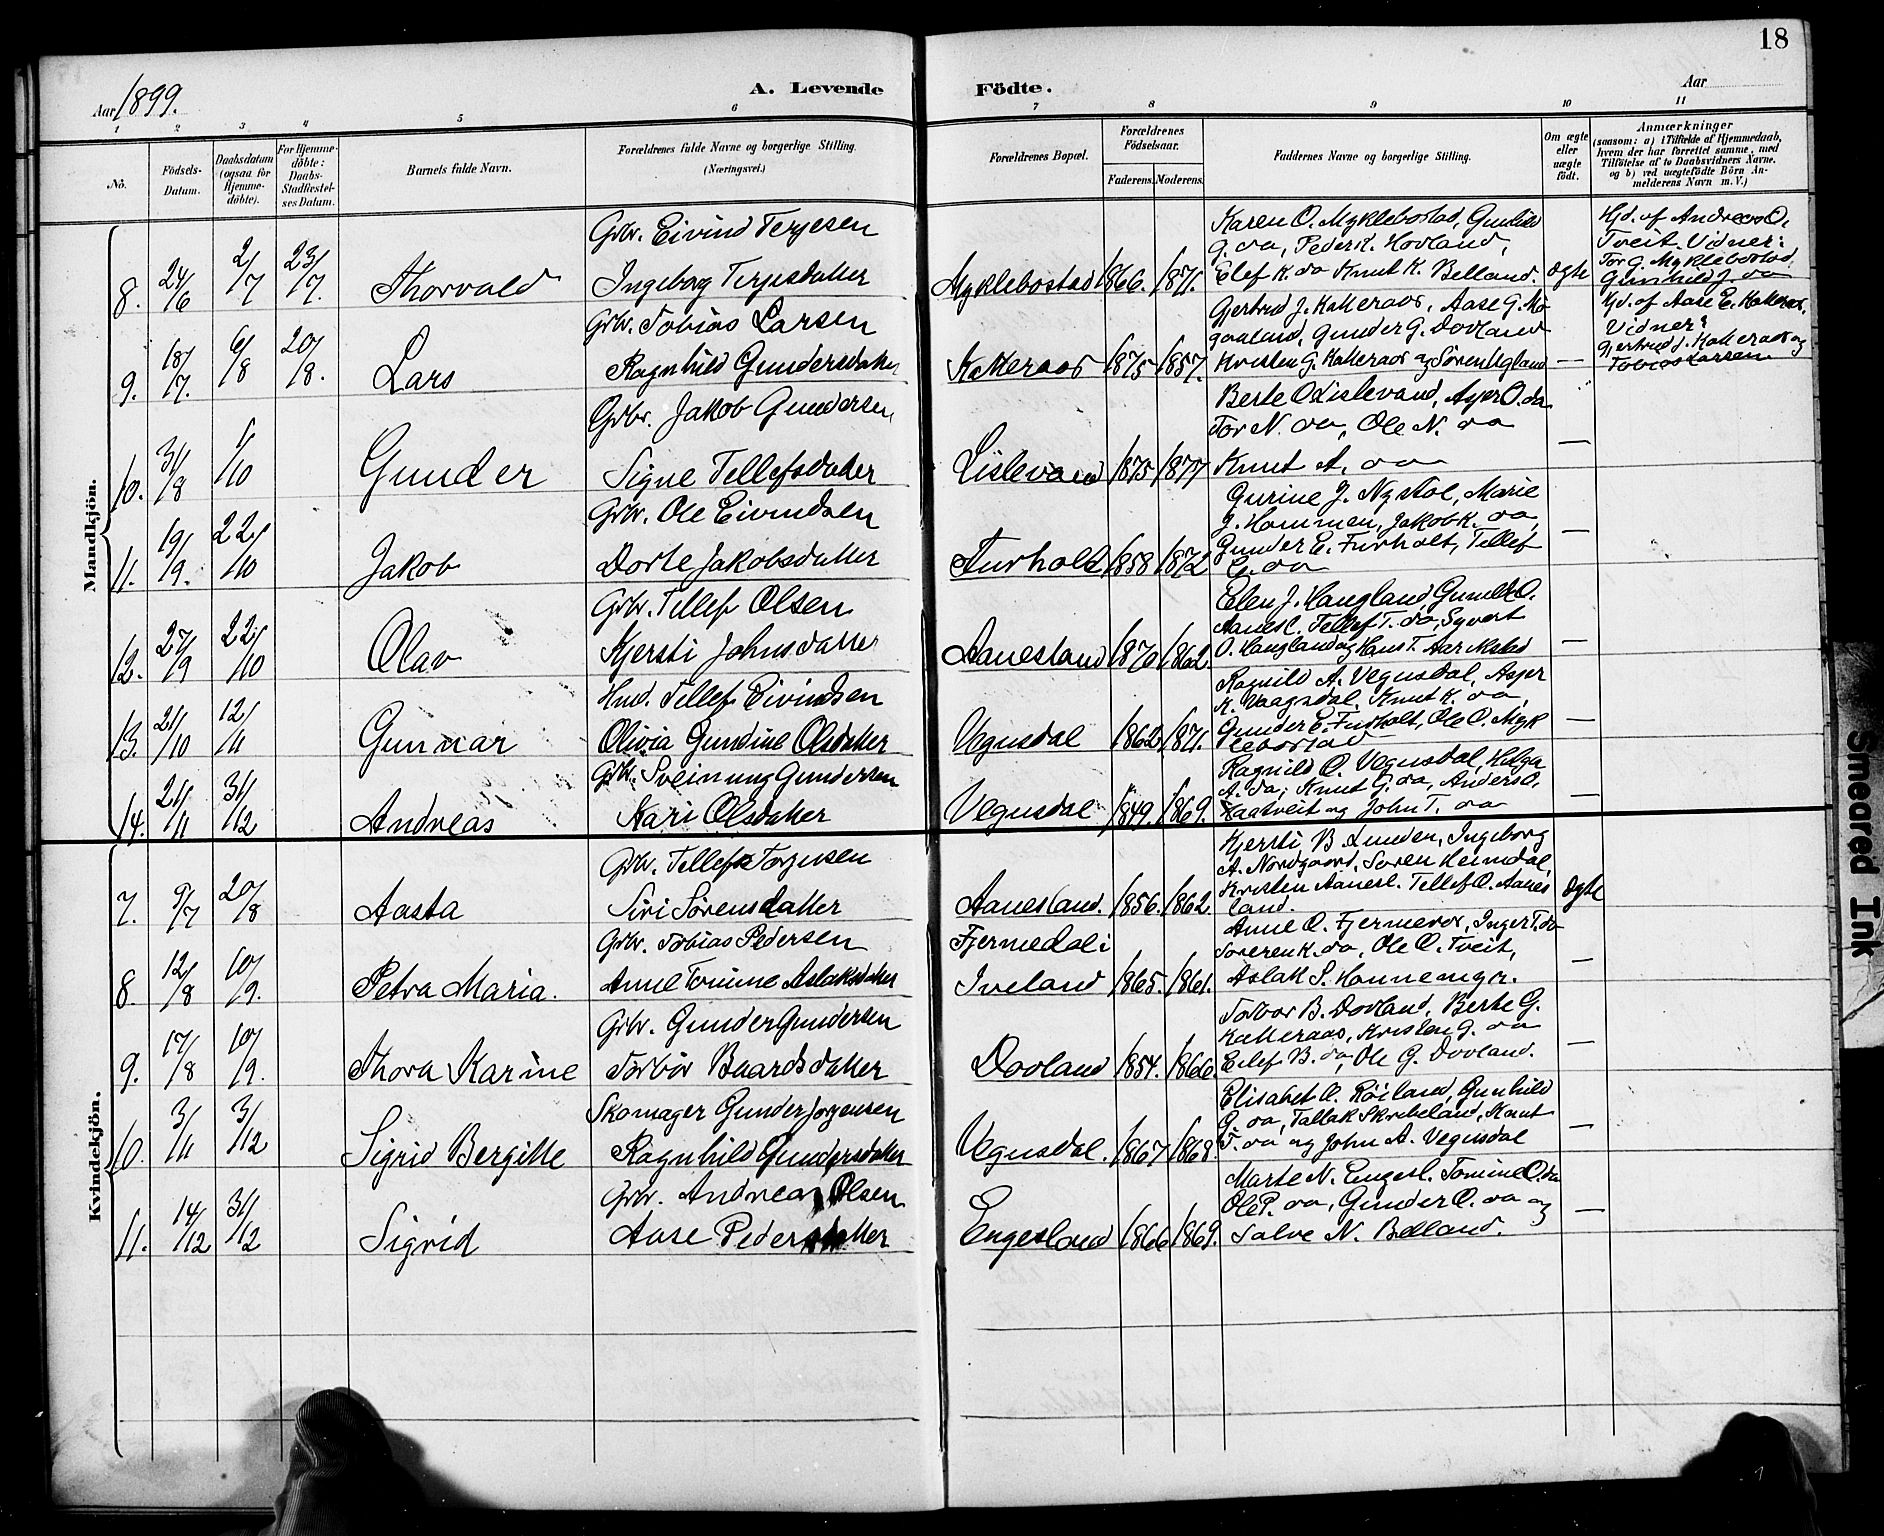 18
Aar 1899.
A. Levende Födte.
Aar
1 2 3 4 5 6 7 8 9 10 11
No.
Födsels-Datum.
Daabsdatum (ogsaa for Hjemme-döbte).
For Hjemme-döbte: Daabs-Stadfæstel-ses Datum.
Barnets fulde Navn.
Forældrenes fulde Navne og borgerlige Stilling. (Næringsvei.)
Forældrenes Bopæl.
Forældrenes Födselsaar.
Faderens. Moderens.
Faddernes Navne og borgerlige Stilling.
Om ægte eller uægte født.
Anmærkninger
(saasom: a) i Tilfælde af Hjemmedaab, hvem der har forrettet samme, med Tilföielse af to Daabsvidners Navne, og b) ved uægtefödte Börn An-melderens Navn m. V.)
Mandkjön.
8. 24/6 2/7 23/7. Thorvald
Grbr. Eivind Terjesen
Ingeborg Terjesdatter
Myklebostad 1866. 1871.
Karen O. Myklebostad, Gunhild
G. do, Peder K. Hovland,
Elef K. do Knut K. Belland. ægte
Hjd. af Andreas O.
Tveit. Vidner:
Tor G. Myklebostad,
Gunhild J. do
9. 18/7. 6/8 20/8. Lars
Grbr. Tobias Larsen
Ragnhild Gundersdatter
Katteraas 1875 1857.
Gjertrud J. Katteraas, Aase G. Mo
gaaland, Gunder G. Dovland
Kristen G. Katteraas og Sören Egland —
Hjd. af Aase E. Katteraas,
Vidner:
Gjertrud J. Katteraas og
Tobias Larsen
10. 31/8 1/10 Gunder
Grbr. Jakob Gundersen,
Signe Tellefsdatter
Lislevand 1875 1877
Berte O Lislevand, Asjer O. do
Tor N. do, Ole N. do
Knut A. do —
11. 19/9. 22/10 Jakob
Grbr. Ole Eivindsen
Dorte Jakobsdatter
Furholt 1858 1872
Gurine J. Nystol, Marie
J. Hommen, Jakob K. do,
Gunder E. Furholt, Tellef
E. do —
12. 27/9 22/10 Olav
Grbr. Tellef Olsen
Kjersti Johnsdatter
Aanesland 1870 1862.
Elen J. Haugland, Gunild O.
Aanesl. Tellef T. do, Syvert
O. Haugland og Hans T. Aarikstad —
13. 21/10 12/11 Gunnar
Hmd. Tellef Eivindsen
Olivia Gundine Olsdatter
Vegusdal 1862 1871.
Ragnild A. Vegusdal, Asjer
K. Vaagsdal, Knut K. do,
Gunder E. Furholt, Ole O. Myk
lebostad —
14. 21/11 31/12 Andreas
Grbr. Sveinung Gundersen
Kari Olsdatter
Vegusdal 1849. 1869.
Ragnild O. Vegusdal, Helga
A. do, Knut G. do, Anders O.
Haatveit og John T. do —
Kvindekjön.
7. 9/7 20/8 Aasta
Grbr. Tellef Torjusen
Siri Sörensdatter
Aanesland. 1856. 1862.
Kjersti B Lunden, Ingeborg
A. Nordgaard, Soren Heimdal,
Kristen Aanesl. Tellef O. Aanes
land. ægte
8. 12/8 10/9. Petra Maria.
Grbr. Tobias Pedersen
Anne Tomine Aslaksdatter
Fjermedal i
Iveland 1865. 1861.
Anne O. Fjermeros, Inger T. do
Soreren K. do, Ole O. Tveit,
Aslak S. Honnemyr. —
9. 17/8 10/9. Thora Karine
Grbr. Gunder Gundersen
Torbör Baardsdatter
Dovland 1854. 1866
Torbor B. Dovland, Berte G.
Katteraas, Kristen G. do
Eilef B. do, Ole G. Dovland. —
10. 3/11 3/12 Sigrid Bergitte
Skomager Gunder Jorgensen
Ragnhild Gundersdatter
Vegusdal. 1867 1868.
Elisabet O. Röiland, Gunhild
G. do, Tallak Skribeland, Knut
T. do og John A. Vegusdal —
11. 14/12 31/12 Sigrid
Grbr. Andreas Olsen
Aase Pedersdatter
Engesland 1866 1869.
Marte N. Engesl. Tomine O. do
Ole P. do, Gunder O. do og
Salve N. Belland. —
Smeared Ink